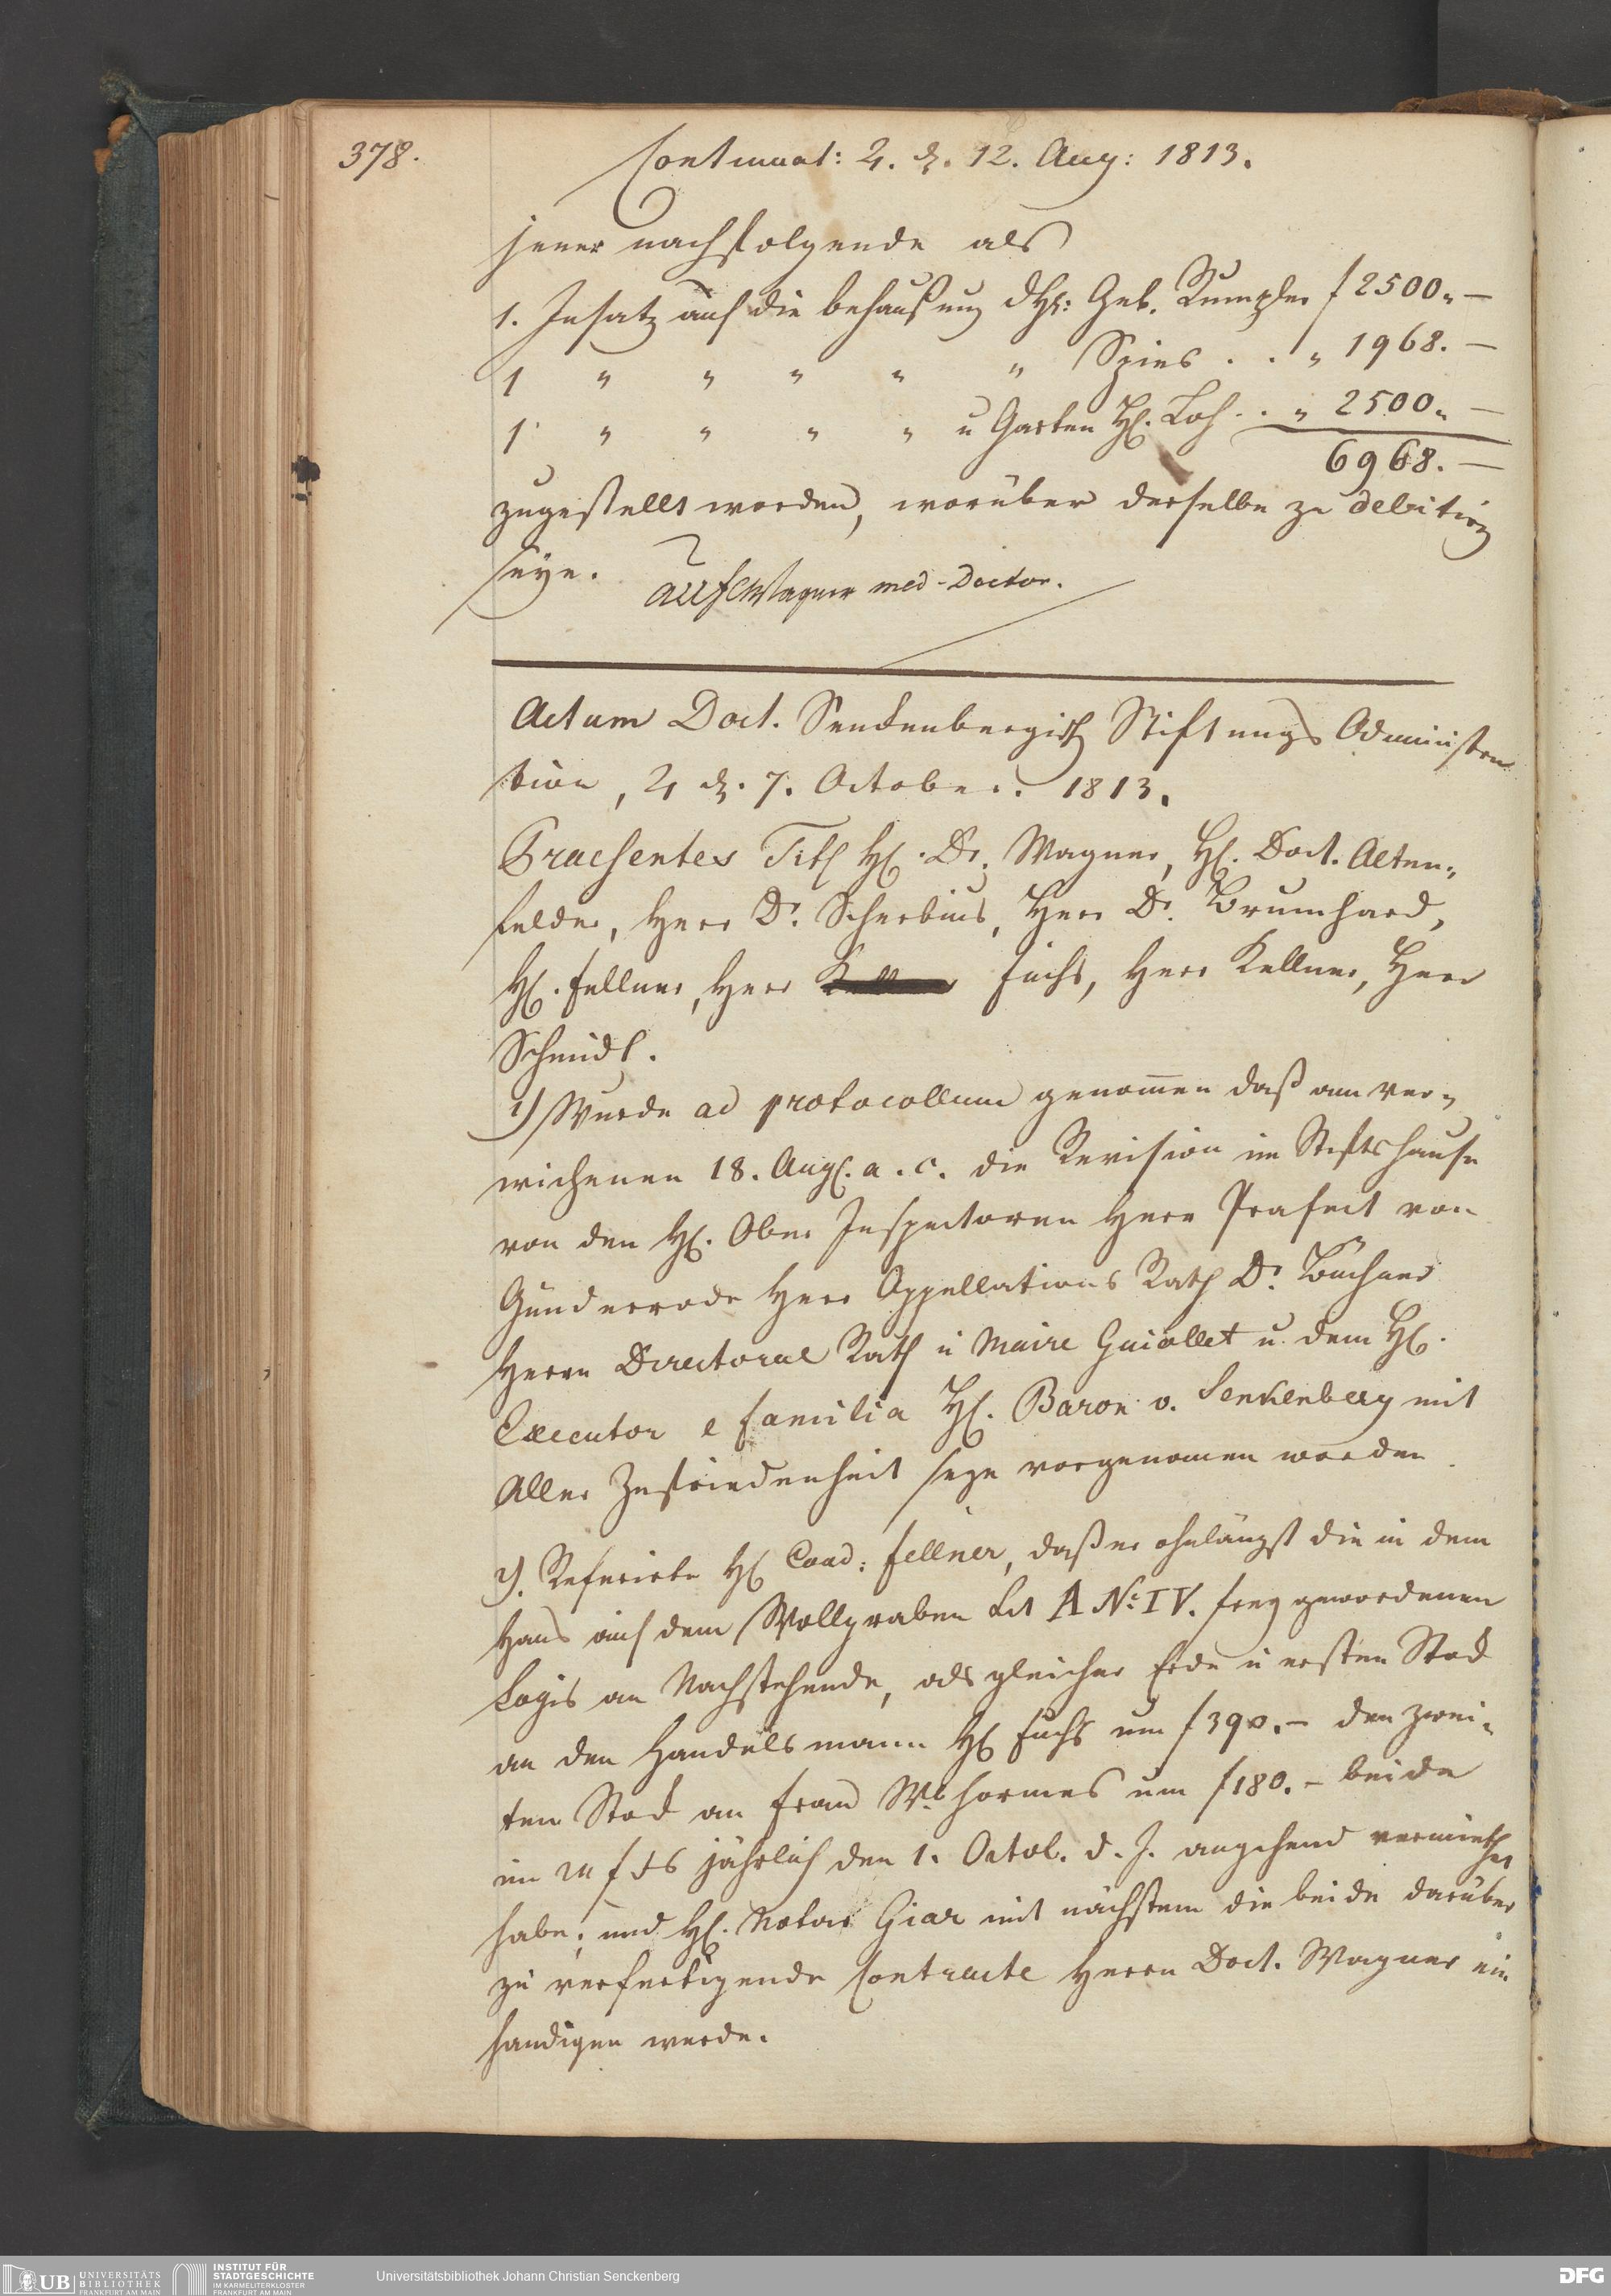 378.
Continuat: ♃. d. 12. Aug: 1813.
jener nachfolgende als
1. Insatz auf die behaußung dHl: Geb. Rumpler f 2500,, —
1 " " " " " Spies . . " 1968. —
1 " " " " u Garten Hl. Loh . . " 2500,, —
6968. —
zugestellt worden, worüber derselbe zu debitiren
seye.
Wagner med-Doctor.
Actum Doct. Senckenbergisch Stiftungs Administra
tion, ♃ d. 7. October. 1813.
Praesentes Titl Hl. Dr. Wagner, Hl. Doct. Alten,,
felder, Herr Dr. Scherbius, Herr Dr. Brumhard,
Hl. Fellner, Herr Fuchs, Herr Kellner, Herr
Schmidt.
1) Wurde ad protocollum genom̅en daß am ver,,
wichenen 18. Augl. a. c. die Revision im Stiftshause
von den Hl. Ober Inspectoren Herr Präfect von
Günderrode Herr Appellations Rath Dr. Büchner
Herrn Directorial Rath u Maire Guiollet u. dem Hl.
Executor e familia Hl. Baron v. Senkenberg mit
Aller Zufriedenheit seye vorgenomen worden.
2). Referirte Hl Coad: Fellner, daß er ohnlängst die in dem
Haus auf dem Wollgraben Lit A No. IV. frey gewordenen
Logis an Nachstehende, als gleicher Erde u ersten Stock
an den Handelsmann Hl Fuchs um f 390. – den zwei,,
ten Stock an Frau Wb Hormes um f 180. – beide
im 24 f Fs jährlich den 1. Octob. d. J. angehend vermiethet
habe; und Hl. Notar Giar mit nächstem die beide darüber
zu verfertigende Contracte Herrn Doct. Wagner ein
händigen werde.
UB UNIVERSITÄTS
BIBLIOTHEK
FRANKFURT AM MAIN
INSTITUT FÜR
STADTGESCHICHTE
IM KARMELITERKLOSTER
FRANKFURT AM MAIN
Universitätsbibliothek Johann Christian Senckenberg
DFG